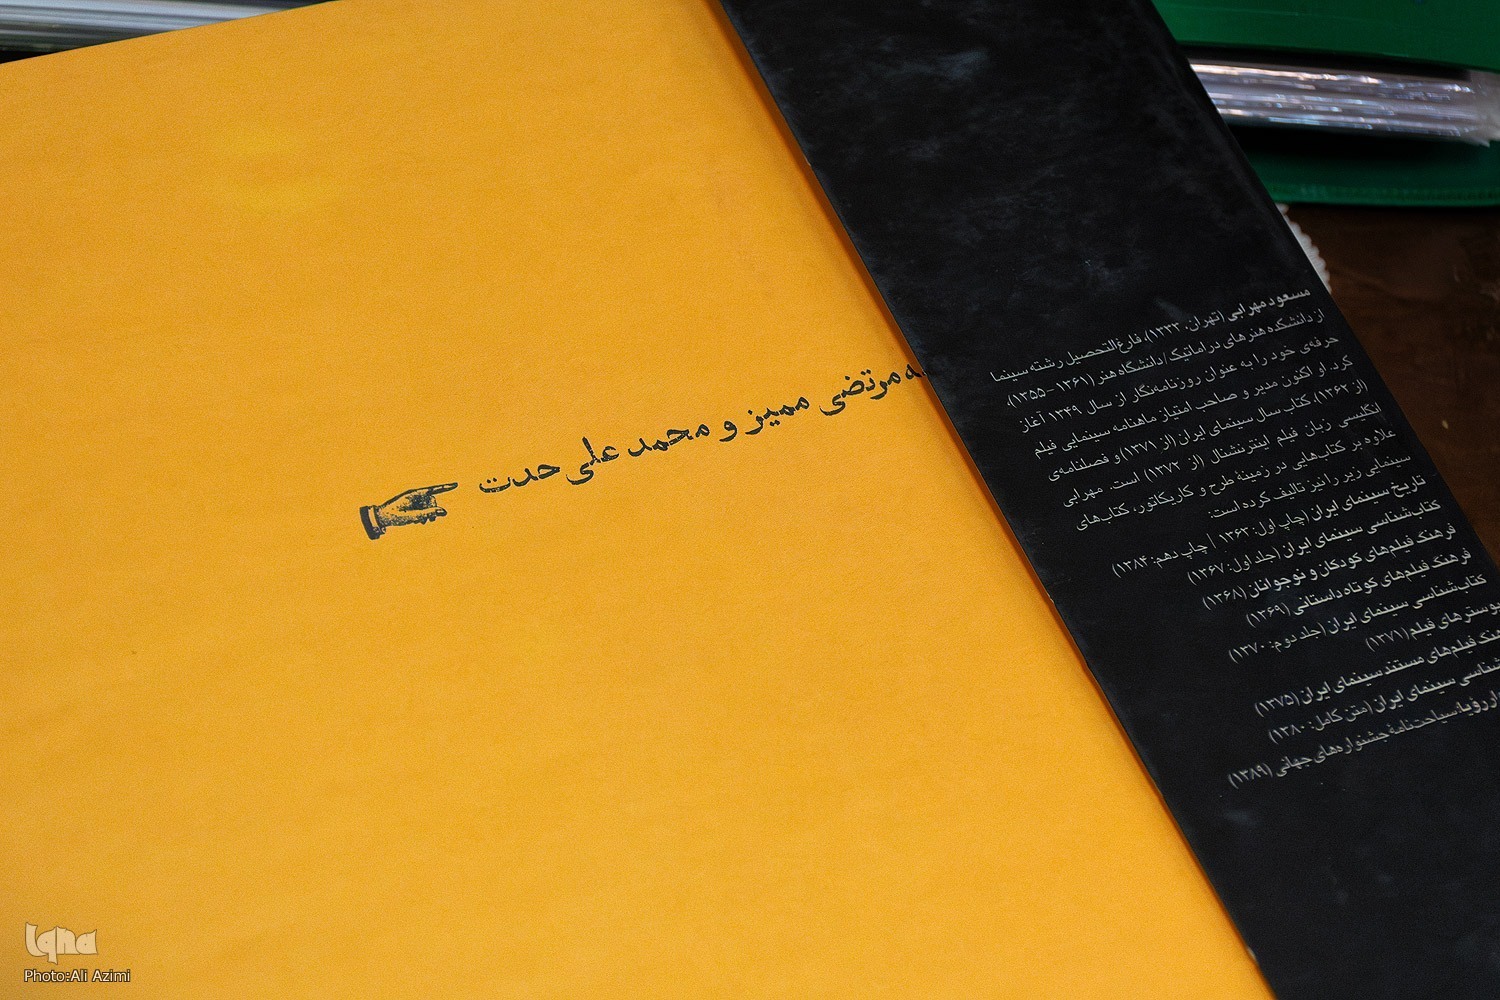 مسعود مهرابی (تهران، ۱۳۳۳)، فارغ‌التحصیل رشته سینما
از دانشکده هنرهای دراماتیک / دانشگاه هنر (۱۳۶۱ – ۱۳۵۵)،
حرفه‌ی خود را به عنوان روزنامه‌نگار از سال ۱۳۴۹ آغاز
کرد. او اکنون مدیر و صاحب امتیاز ماهنامه سینمایی فیلم
(از ۱۳۶۲)، کتاب سال سینمای ایران (از ۱۳۷۱) و فصلنامه‌ی
انگلیسی زبان فیلم اینترنشنال (از ۱۳۷۲) است. مهرابی
علاوه بر کتاب‌هایی در زمینه طرح و کاریکاتور، کتاب‌های
سینمایی زیر را نیز تالیف کرده است:
تاریخ سینمای ایران (چاپ اول: ۱۳۶۳ | چاپ دهم: ۱۳۸۴)
کتاب‌شناسی سینمای ایران (جلد اول: ۱۳۶۷)
فرهنگ فیلم‌های کودکان و نوجوانان (۱۳۶۸)
فرهنگ فیلم‌های کوتاه داستانی (۱۳۶۹)
کتاب‌شناسی سینمای ایران (جلد دوم: ۱۳۷۰)
پوسترهای فیلم (۱۳۷۱)
فیلم‌های مستند سینمای ایران (۱۳۷۵)
سینمای ایران (متن کامل: ۱۳۸۰)
رؤیا: سیاحت‌نامهٔ جشنواره‌های جهانی (۱۳۸۹)
مرتضی ممیز و محمد علی حدت
Iqna
Photo:Ali Azimi